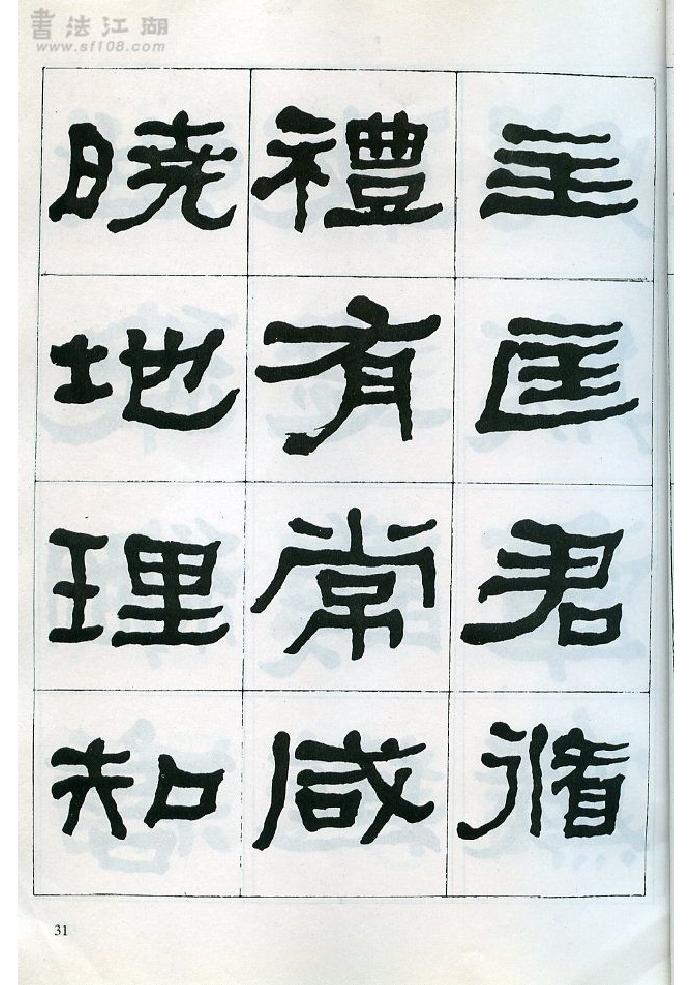 書法江湖
www.sf108.com
主匡君循
禮有常咸
曉地理知
31